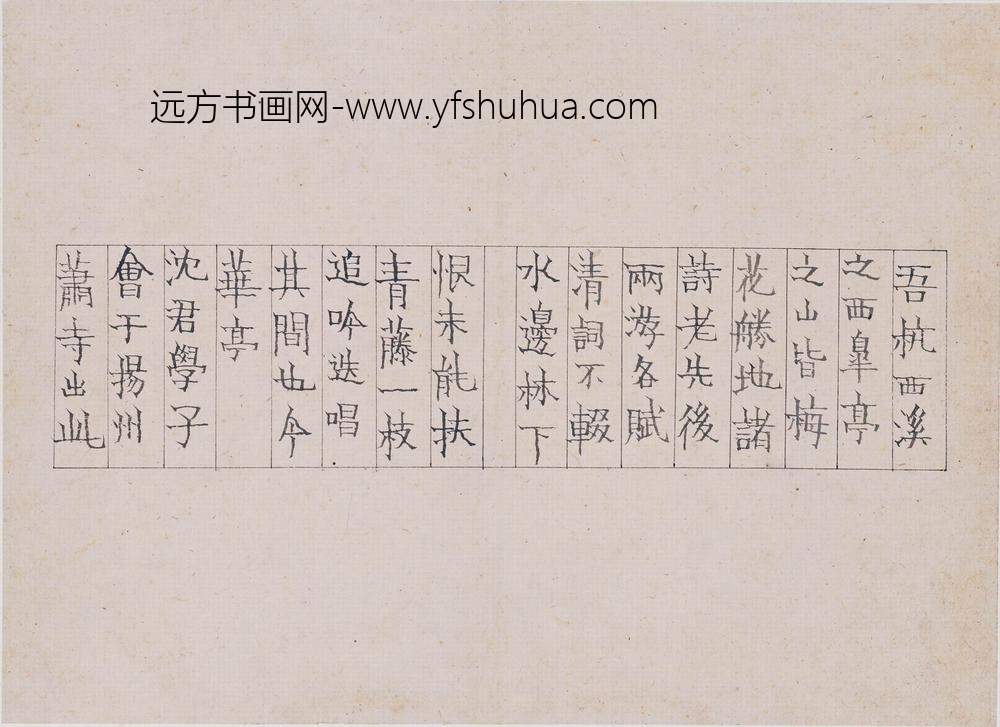 远方书画网-www.yfshuhua.com
吾杭西溪
之西皐亭
之山皆梅
花勝地諸
詩老先後
兩游各賦
清詞不輟
水邊林下
恨未能扶
青藤一枝
追吟迭唱
其間也今
華亭
沈君學子
會于揚州
蕭寺出此